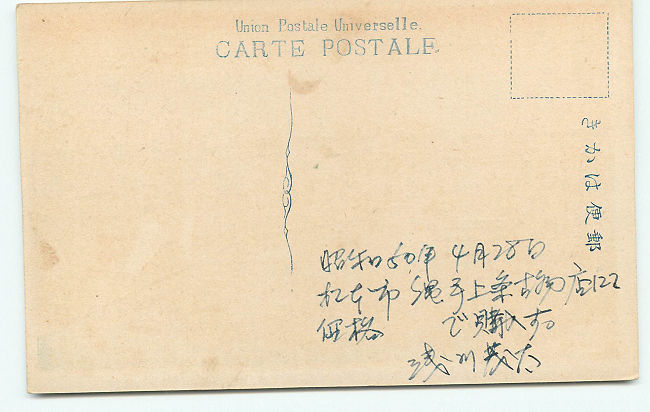 Union Postale Universelle.
CARTE POSTALE
きかは便郵
昭和50年 4月28日
松本市 縄手上条古物店に
価格 で購入する
浅川茂夫